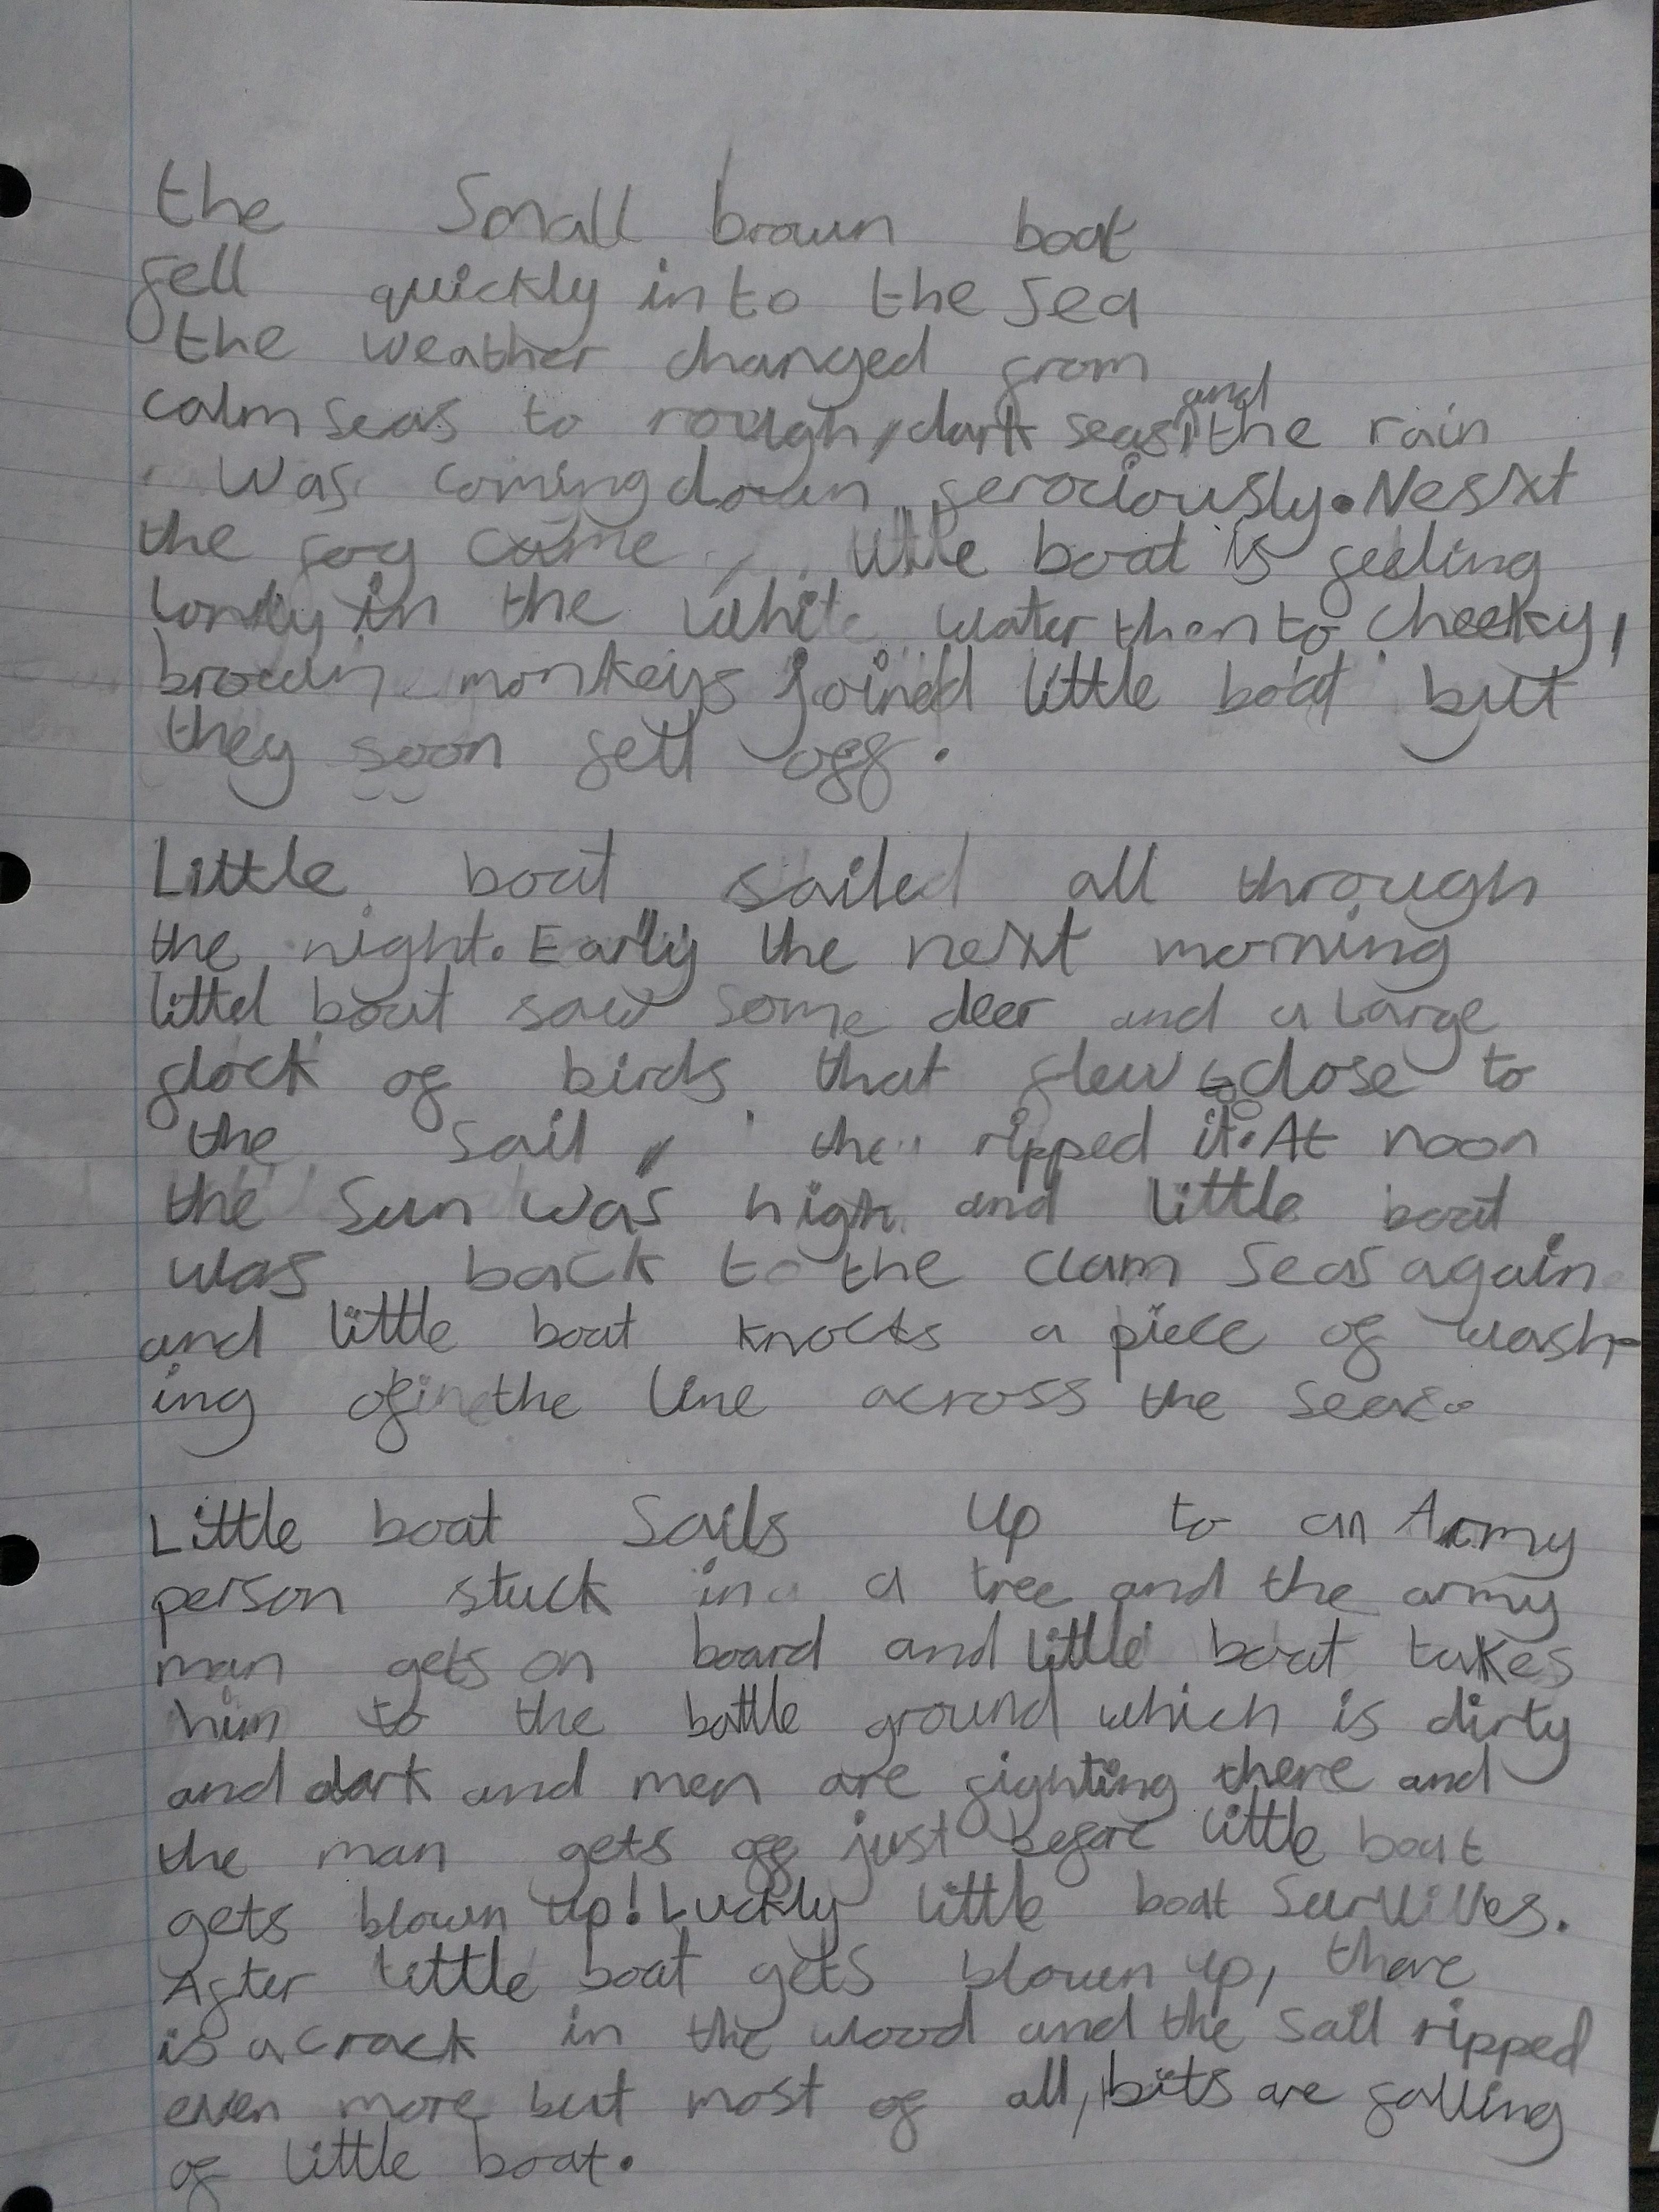 the small brown boat
fell quickly into the sea
the weather changed from
calm seas to rough, dark seas, and the rain
Was coming down ferociously. Nesxt
the fog came little boat is feeling
lonely in the white water then to cheeky,
brown monkeys joined little boat but
they soon fell off.
Little boat sailed all through
the night. Early the next morning
littel boat saw some deer and a large
flock of birds that flew so close to
the sail, the ripped it. At noon
the sun was high and little boat
was back to the clam seas again
and little boat knocks a piece of wash-
ing of the line across the seas.
Little boat sails up to an Army
person stuck in a tree and the army
man gets on board and little boat takes
him to the battle ground which is dirty
and dark and men are fighting there and
the man gets off just before little boat
gets blown up! Luckly little boat survives.
After little boat gets blown up, there
is a crack in the wood and the sail ripped
even more but most of all, bits are falling
of little boat.